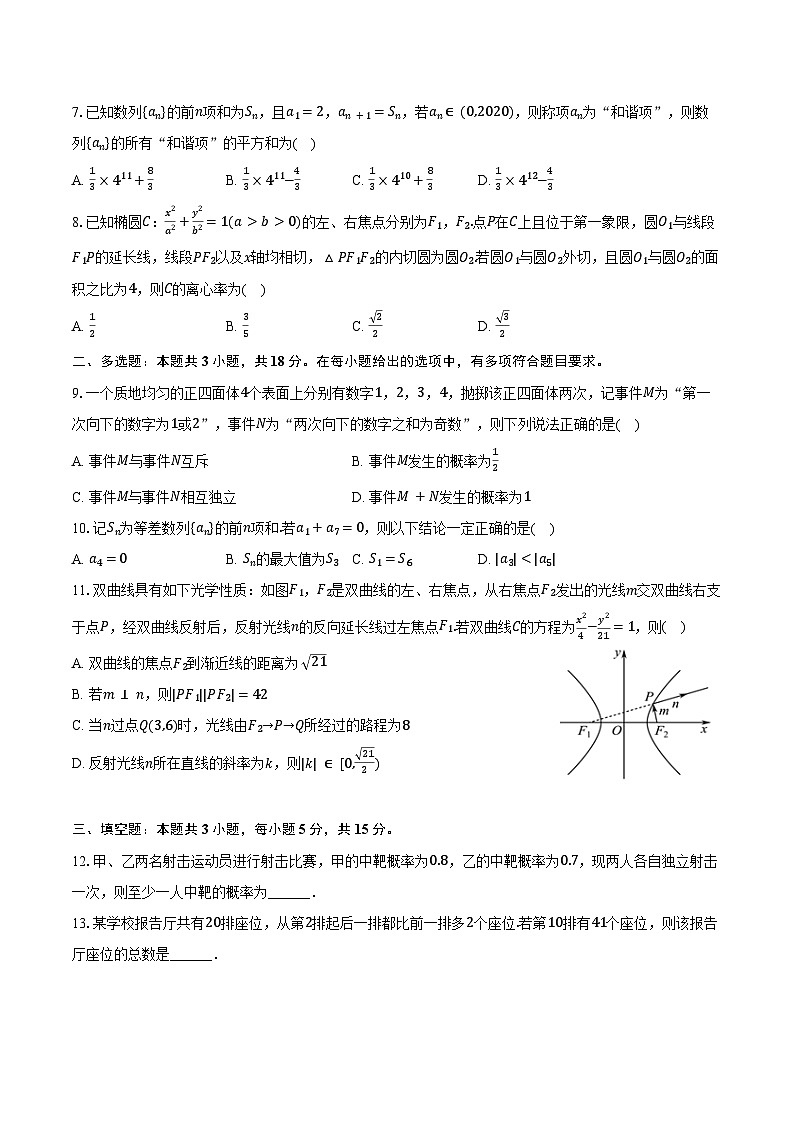 7. 已知数列{aₙ}的前n项和为Sₙ，且a₁ = 2，aₙ₊₁ = Sₙ，若aₙ ∈ (0,2020)，则称项aₙ为“和谐项”，则数
列{aₙ}的所有“和谐项”的平方和为(　)
A. 1/3 × 4¹¹ + 8/3　B. 1/3 × 4¹¹ − 4/3　C. 1/3 × 4¹⁰ + 8/3　D. 1/3 × 4¹² − 4/3
8. 已知椭圆C：x²/a² + y²/b² = 1(a > b > 0)的左、右焦点分别为F₁，F₂.点P在C上且位于第一象限，圆O₁与线段
F₁P的延长线，线段PF₂以及x轴均相切，△PF₁F₂的内切圆为圆O₂.若圆O₁与圆O₂外切，且圆O₁与圆O₂的面
积之比为4，则C的离心率为(　)
A. 1/2　B. 3/5　C. √2/2　D. √3/2
二、多选题：本题共3小题，共18分。在每小题给出的选项中，有多项符合题目要求。
9. 一个质地均匀的正四面体4个表面上分别有数字1，2，3，4，抛掷该正四面体两次，记事件M为“第一
次向下的数字为1或2”，事件N为“两次向下的数字之和为奇数”，则下列说法正确的是(　)
A. 事件M与事件N互斥　B. 事件M发生的概率为1/2
C. 事件M与事件N相互独立　D. 事件M + N发生的概率为1
10. 记Sₙ为等差数列{aₙ}的前n项和.若a₁ + a₇ = 0，则以下结论一定正确的是(　)
A. a₄ = 0　B. Sₙ的最大值为S₃　C. S₁ = S₆　D. |a₃| < |a₅|
11. 双曲线具有如下光学性质：如图F₁，F₂是双曲线的左、右焦点，从右焦点F₂发出的光线m交双曲线右支
于点P，经双曲线反射后，反射光线n的反向延长线过左焦点F₁.若双曲线C的方程为x²/4 − y²/21 = 1，则(　)
A. 双曲线的焦点F₂到渐近线的距离为√21
B. 若m ⊥ n，则|PF₁||PF₂| = 42
C. 当n过点Q(3,6)时，光线由F₂→P→Q所经过的路程为8
D. 反射光线n所在直线的斜率为k，则|k| ∈ [0,√21/2)
y
P
n
m
F₁
O
F₂
x
三、填空题：本题共3小题，每小题5分，共15分。
12. 甲、乙两名射击运动员进行射击比赛，甲的中靶概率为0.8，乙的中靶概率为0.7，现两人各自独立射击
一次，则至少一人中靶的概率为______．
13. 某学校报告厅共有20排座位，从第2排起后一排都比前一排多2个座位.若第10排有41个座位，则该报告
厅座位的总数是______．